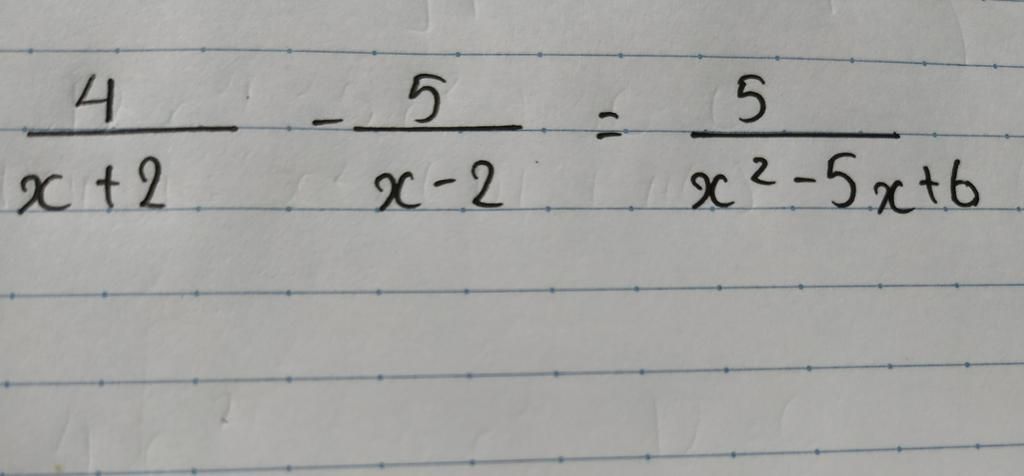 4/(x+2) - 5/(x-2) = 5/(x²-5x+6)